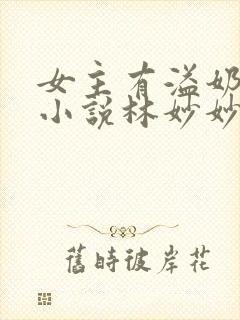 女主有溢奶
小說林妙妙
舊時彼岸花